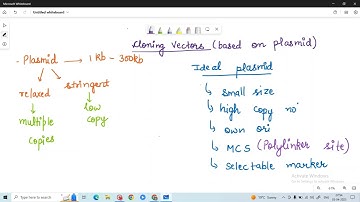 Microsoft Whiteboard
Untitled whiteboard
Cloning Vectors (based on plasmid)
- Plasmid → 1 Kb - 300kb
relaxed
stringent
multiple copies
low copy
Ideal plasmid
↳ small size
↳ high copy no
↳ own ori
↳ MCS (Polylinker site)
↳ selectable marker
Activate Windows